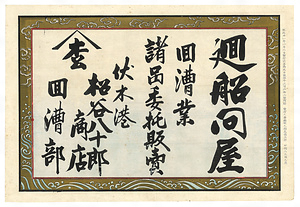 廻船问屋
回漕業
諸品委托販賣
伏木港
松谷八十郎
商店
回漕部